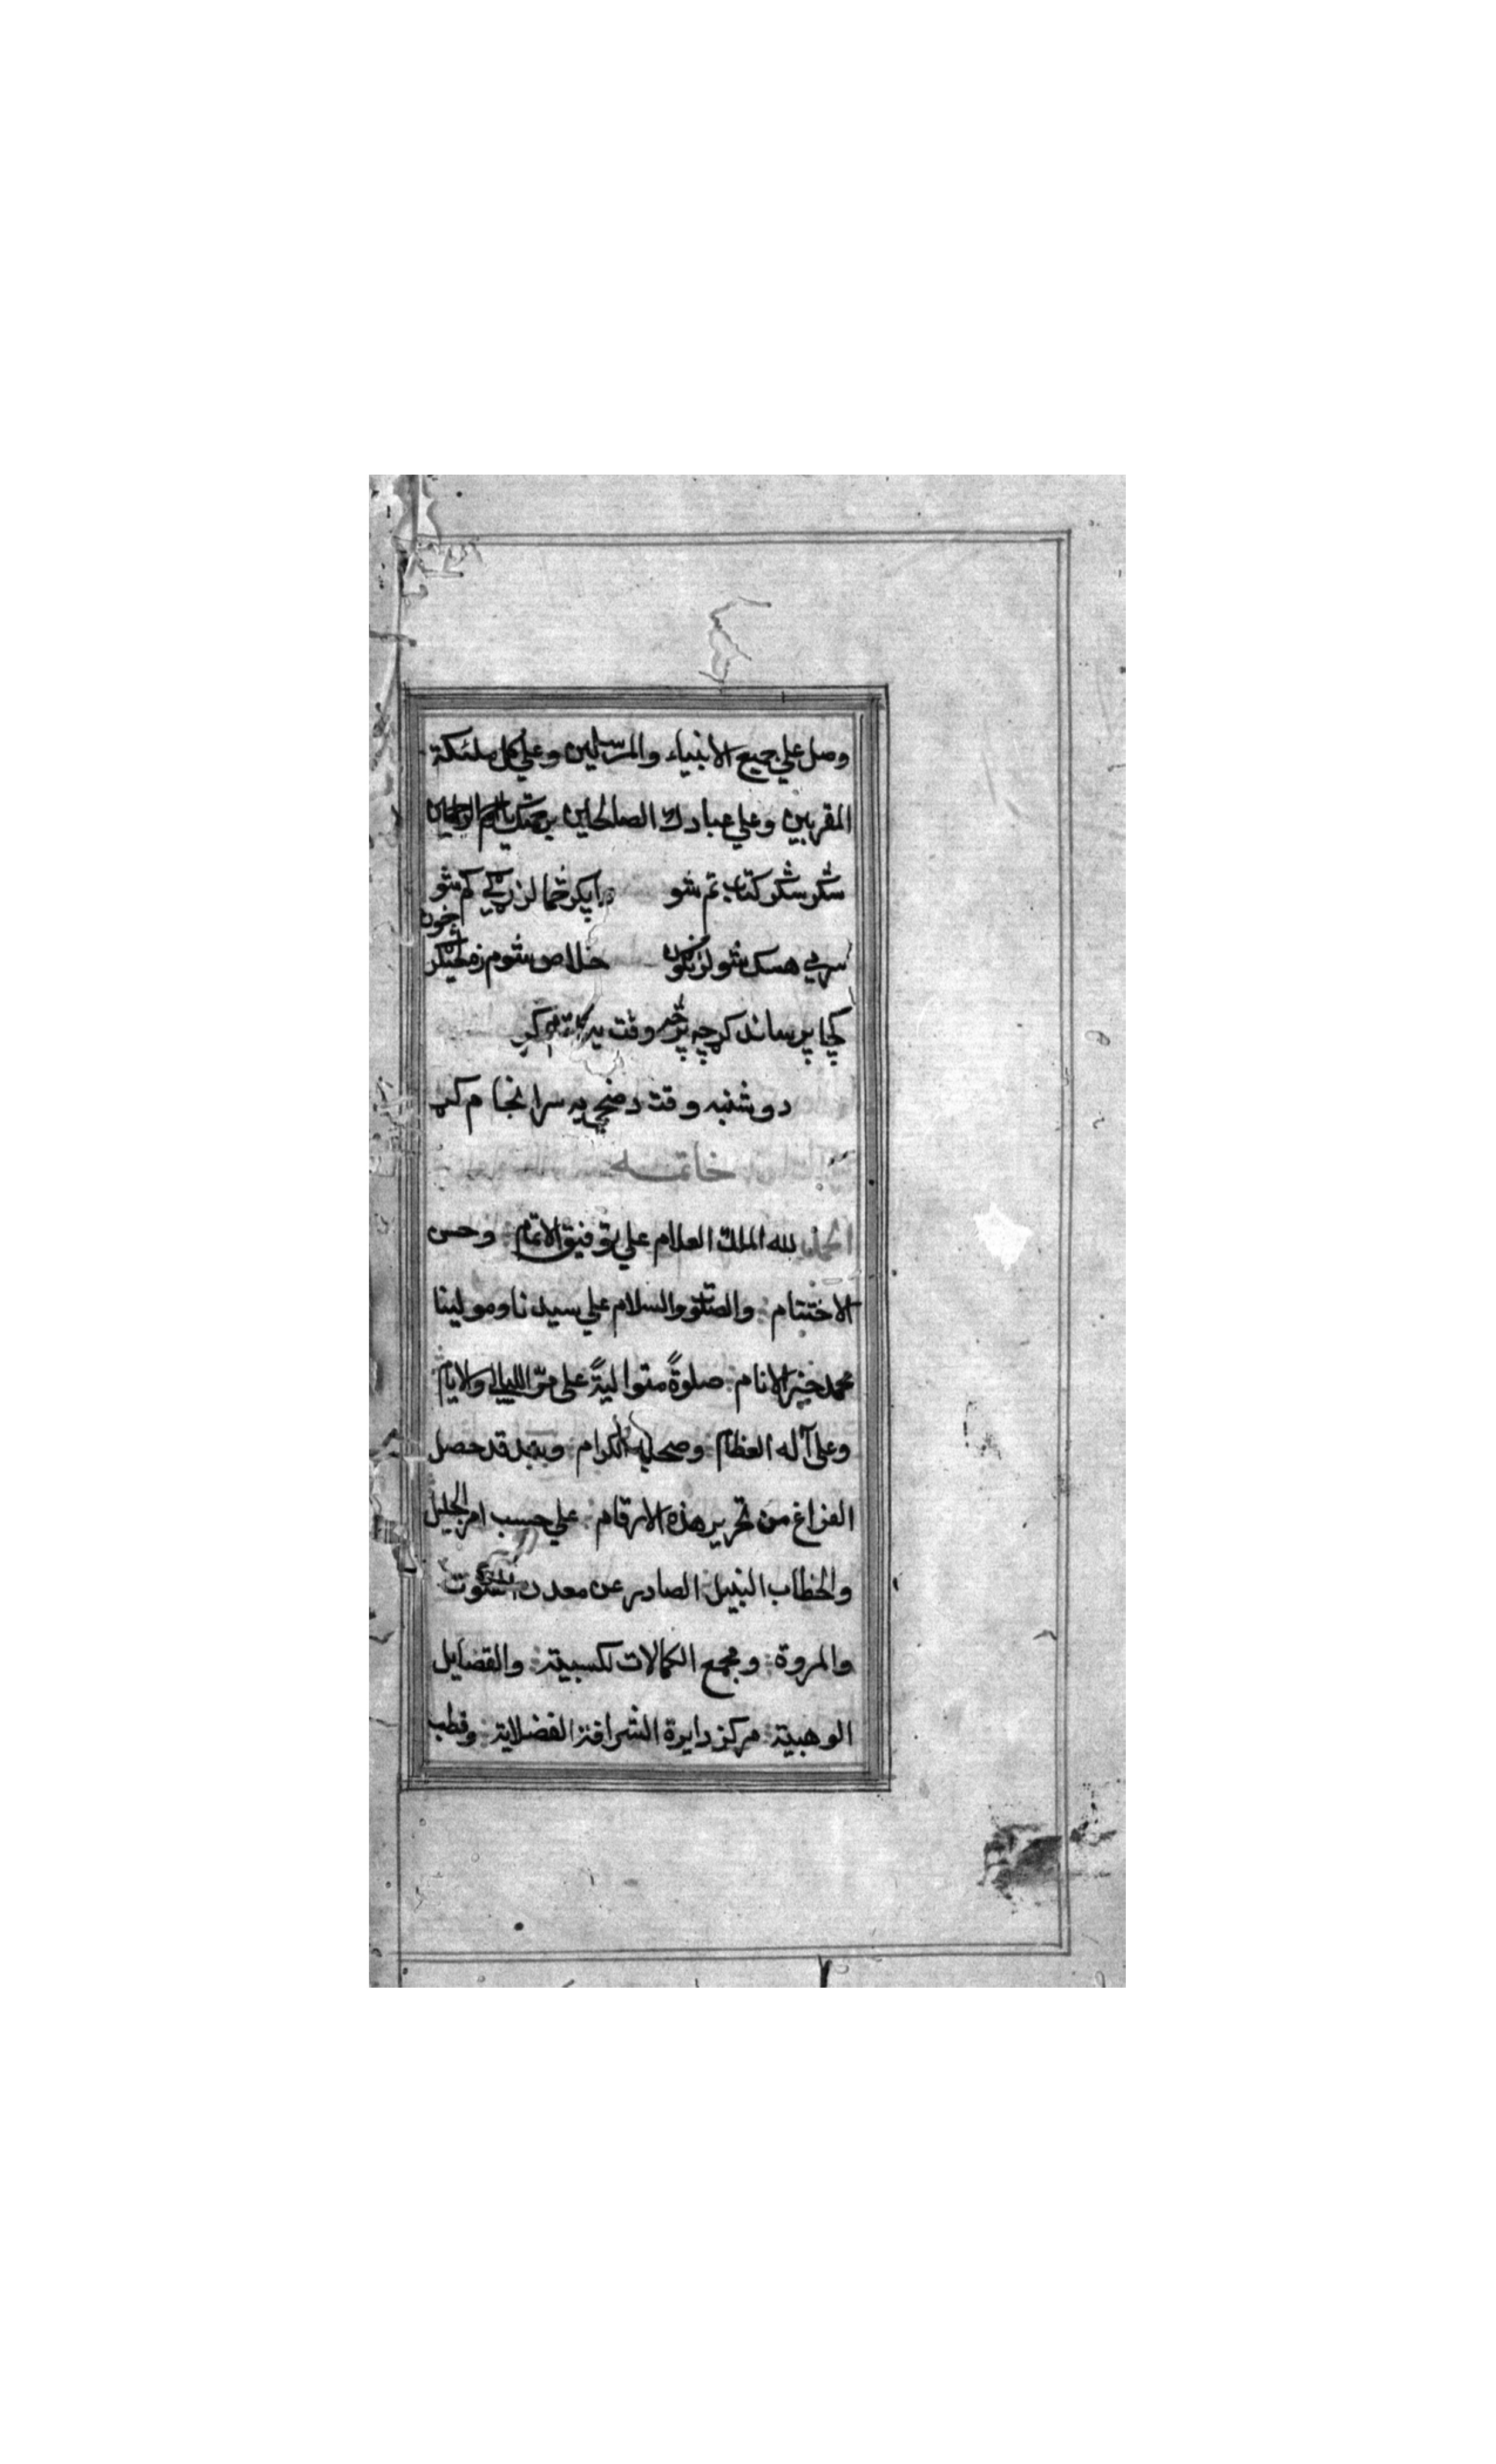 وصل علي جميع الانبياء والمرسلين وعلي كل ملئكة
المقربين وعلي عبادك الصالحين برحمتك يا ارحم الراحمين
شكر شكر كتاب تم شو دا پكر څما لزړكي كم شو
سړي هسك شو لزنكون خلاص شوم ز
كچا پرساند كړ چه پرڅه وقت
دوشنبه وقت د ضحي په سرانجام كړ
خاتمه
الحمد لله الملك العلام علي توفيق الاتمام وحسن
الاختتام والصلوة والسلام علي سيدنا ومولينا
محمد خير الانام صلوةً متواليةً علي مرّ الليالي والايام
وعلي آله العظام وصحابه الكرام وبعد قد حصل
الفراغ من تحرير هذه الارقام علي حسب امر الجليل
والخطاب النبيل الصادر عن معدن
والمروة ومجمع الكمالات لكسبية والفضايل
الوهبية مركز دايرة الشرافة الفضلاية وقطب